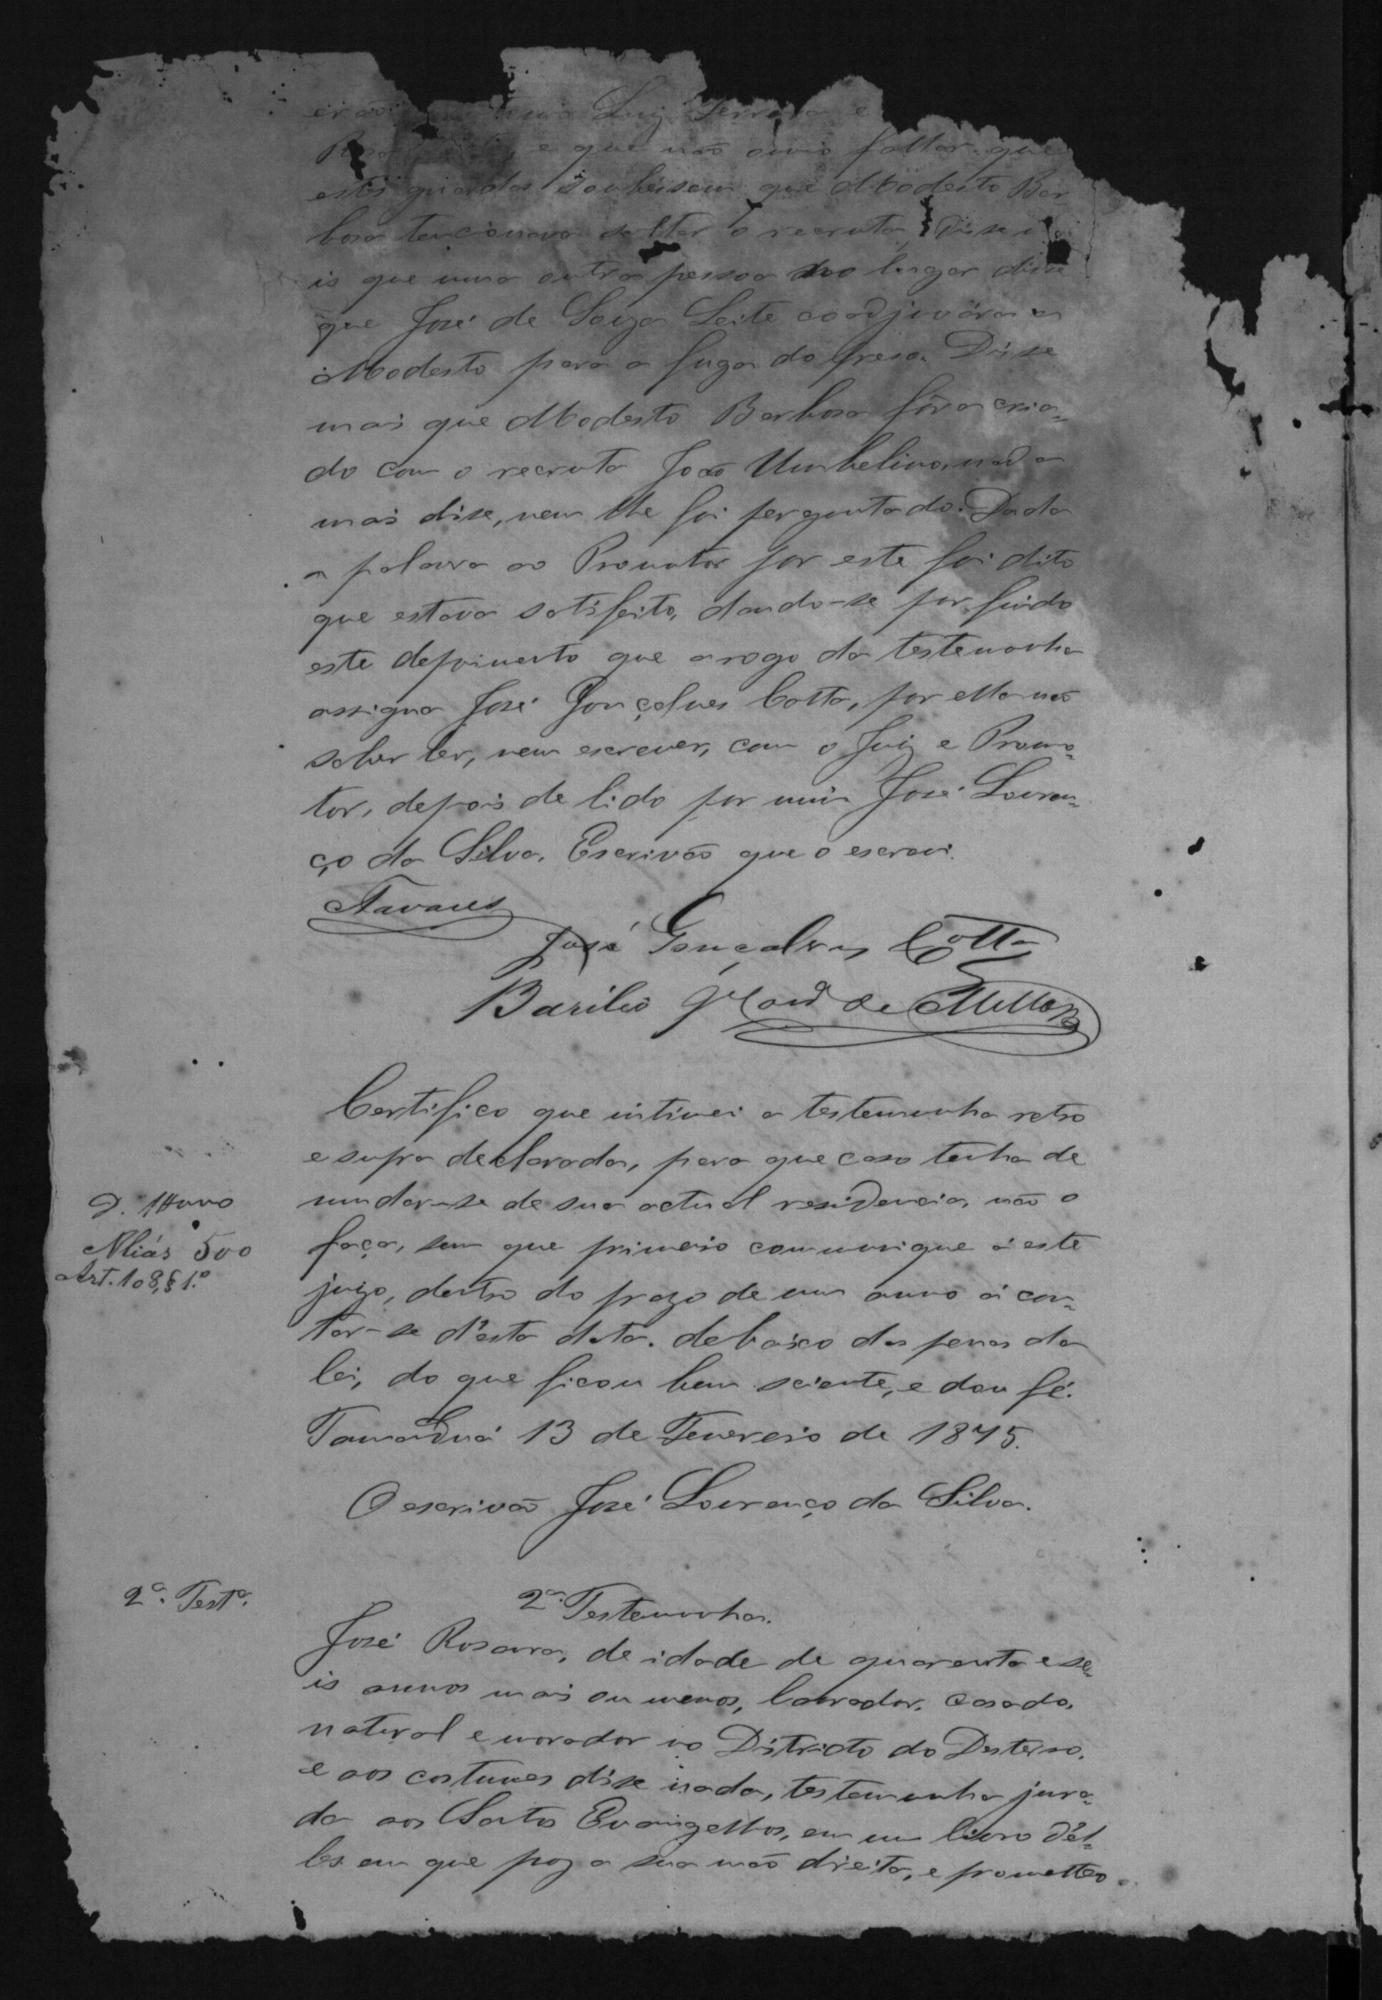 Luiz Ferreira e
e que não ouvio fallar que
estes guardas soubessem que Modesto Bar-
bosa tencionava soltar o recruta, Disse ma-
is que uma outra pessoa do lugar disse
que José de Souza Leite coadjuvára a
Modesto para a fuga do preso. Disse
mais que Modesto Barbosa fôra cria-
do com o recruta João Umbelino, nada
mais disse, nem lhe foi perguntado. Dada
a palavra ao Promotor por este foi dito
que estava satisfeito, dando-se por findo
este depoimento que a rogo da testemunha
assigna José Gonçalves Cotta, por ella não
saber ler, nem escrever, com o Juiz e Promo-
tor, depois de lido por mim José Louren-
ço da Silva, Escrivão que o escrevi.
Tavares
José Gonçalves Cotta
Basilio de Mello
Certifico que intimei a testemunha retro
e supra declarada, para que caso tenha de
mudar-se de sua actual residencia, não o
faça, sem que primeiro communique á este
juizo, dentro do prazo de um anno á con-
tar-se d'esta data, debaixo das penas da
lei, do que ficou bem sciente, e dou fé.
Tamanduá 13 de Fevereiro de 1875.
O escrivão José Lourenço da Silva.
Aliás 500
Art. 108, § 1.º
2ª. Testª.
2ª. Testemunha.
José Rosaura, de idade de quarenta e se-
is annos mais ou menos, lavrador, casado,
natural e morador no Districto do Desterro,
e aos costumes disse nada, testemunha jura-
da aos Santos Evangelhos, em um livro d'el-
les em que poz a sua mão direita, e prometteo